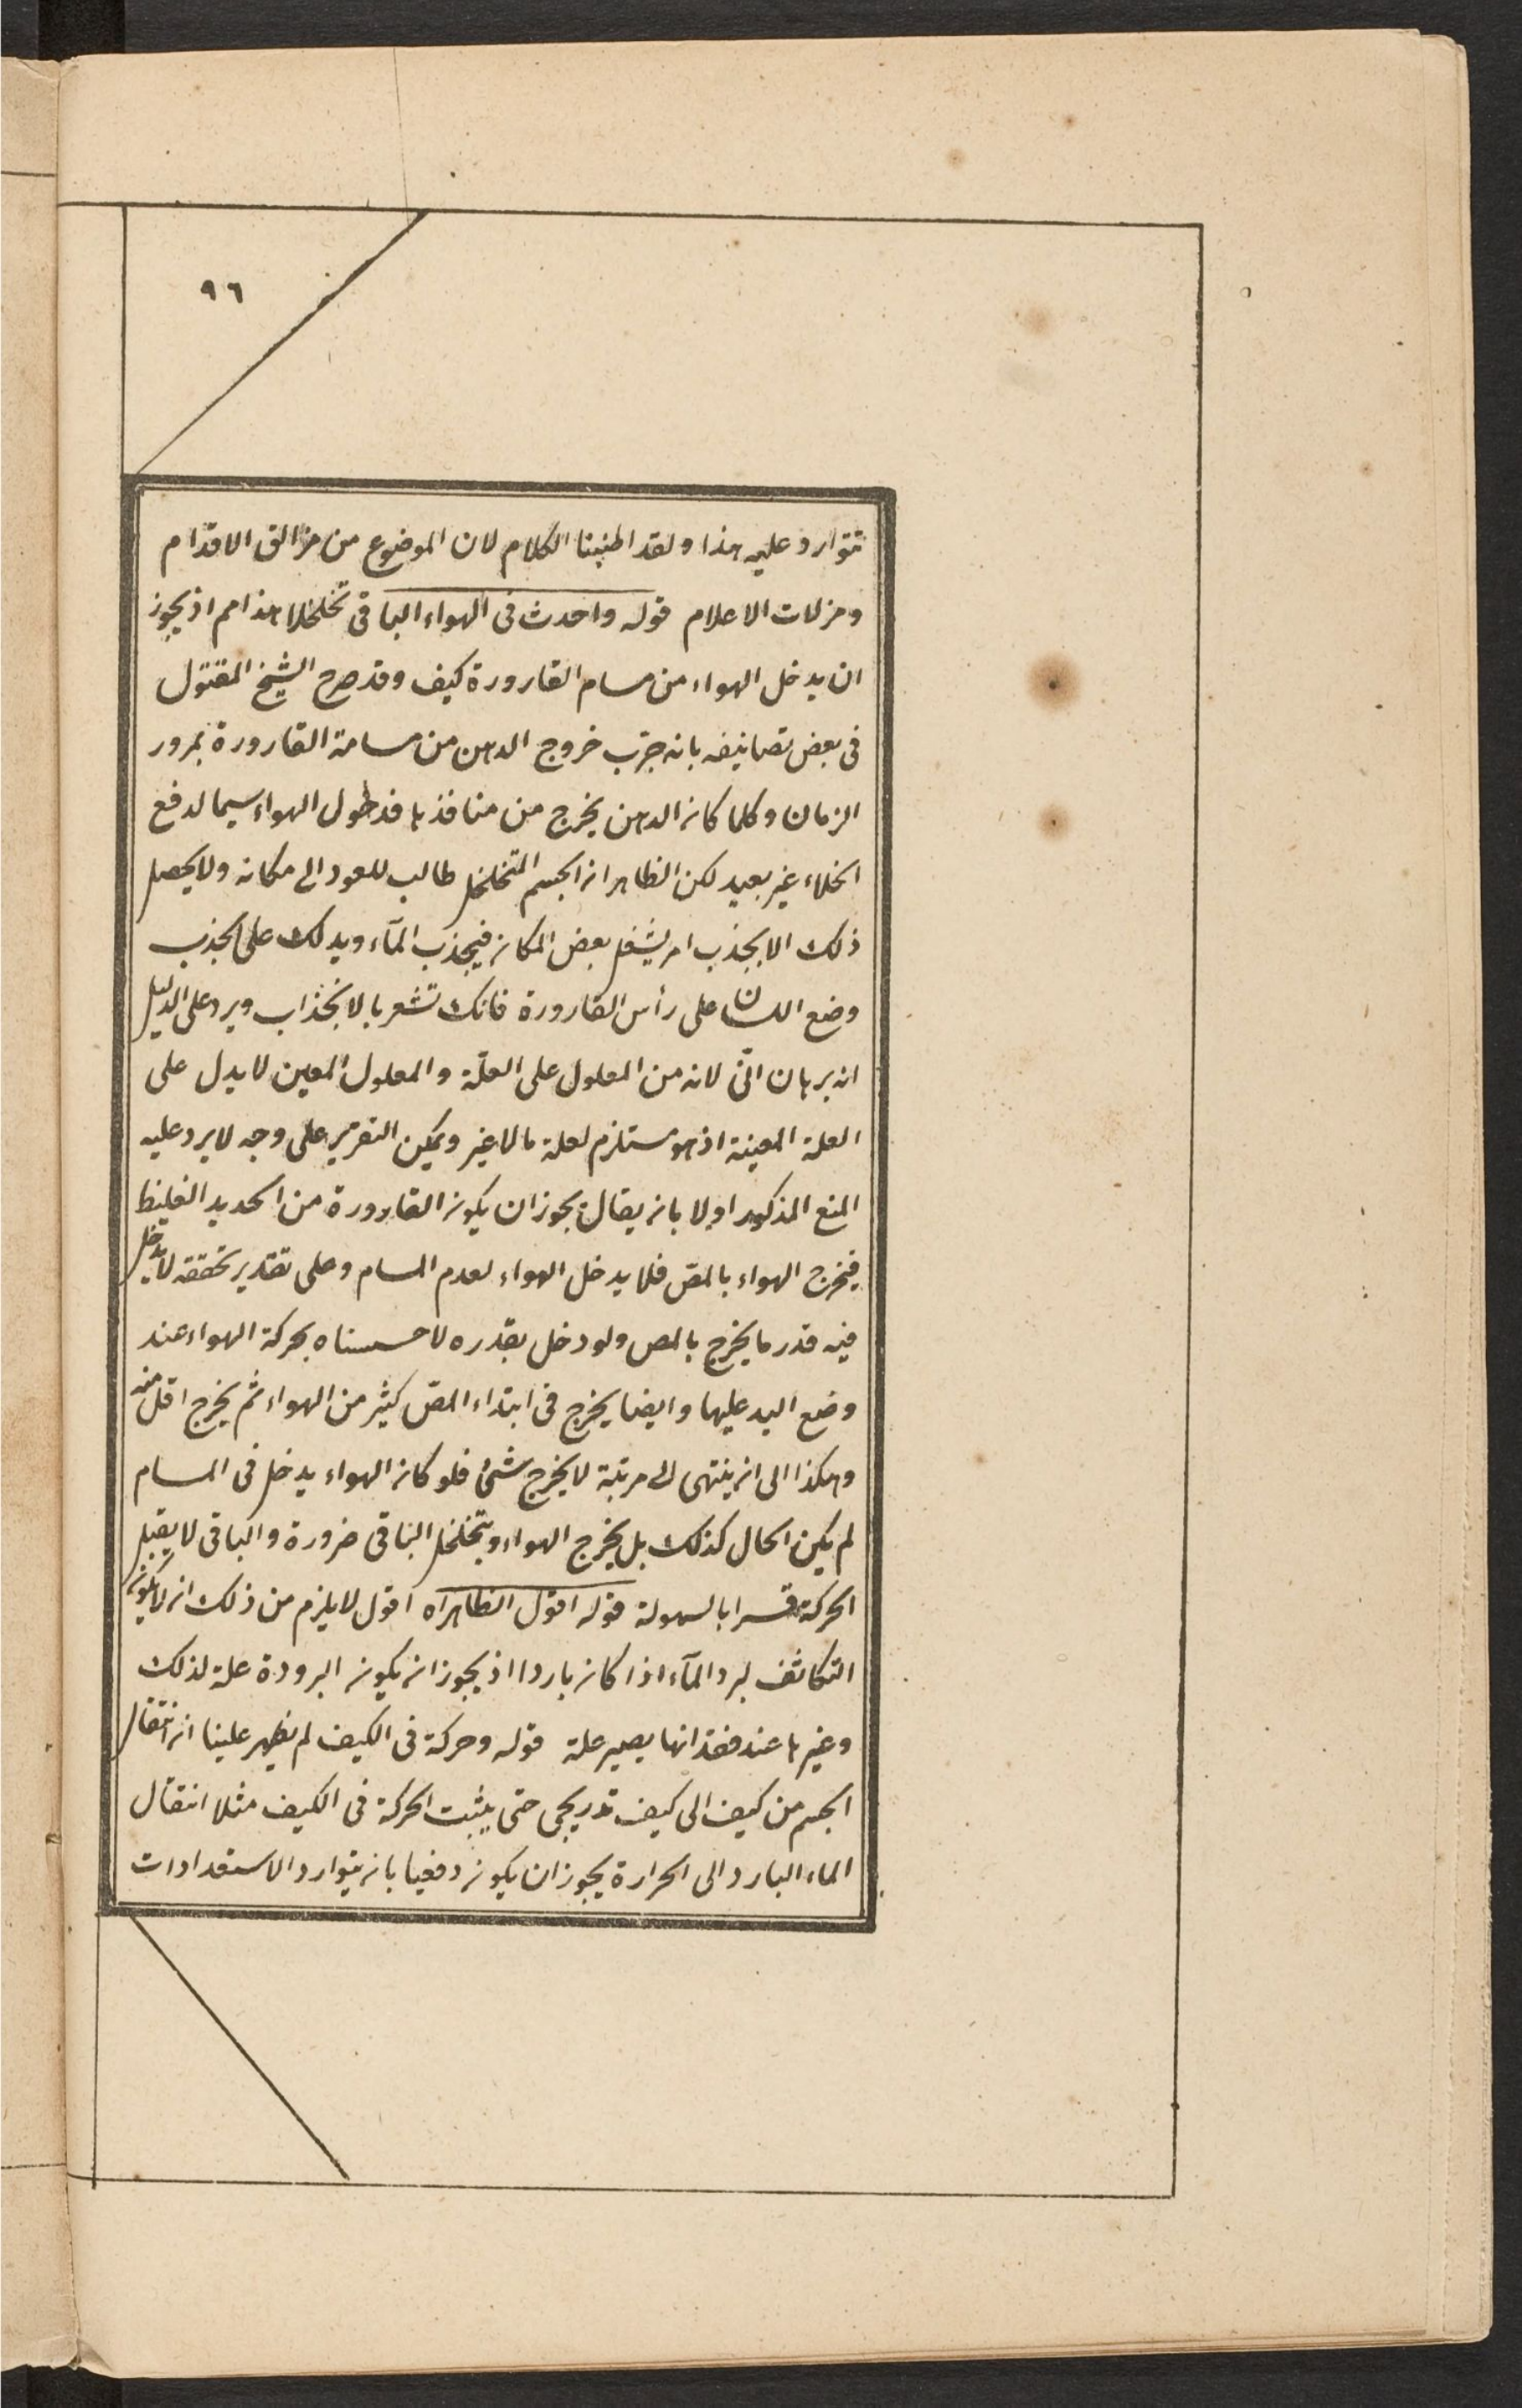 ٩٦
تتوارد عليه هذا ولقد اطنبنا الكلام لان الموضوع من مزالق الاقدام
ومزلات الاعلام قوله واحدث فى الهواء الباقى تخلخلا هذا مم اذ يجوز
ان يدخل الهواء من مسام القارورة كيف وقد صرح الشيخ المقتول
فى بعض تصانيفه بانه جرّب خروج الدهن من مسامة القارورة بمرور
الزمان وكلما كان الدهن يخرج من منافذها فدخول الهواء سيما لدفع
الخلاء غير بعيد لكن الظاهر ان الجسم المتخلخل طالب للعود الى مكانه ولا يحصل
ذلك الا بجذب امر يشغل بعض المكان فيجذب المآء ويدلك على الجذب
وضع اللسان على رأس القارورة فانك تشعر بالانجذاب ويرد على الدليل
انه برهان انّى لانه من المعلول على العلّة والمعلول المعين لا يدل على
العلة المعينة اذ هو مستلزم لعلة ما لا غير ويمكن التقرير على وجه لا يرد عليه
المنع المذكور اولا بان يقال يجوز ان يكون القارورة من الحديد الغليظ
فيخرج الهواء بالمصّ فلا يدخل الهواء لعدم المسام وعلى تقدير تحققه لا يدخل
فيه قدر ما يخرج بالمص ولو دخل بقدره لاحسسناه بحركة الهواء عند
وضع اليد عليها وايضا يخرج فى ابتداء المصّ كثير من الهواء ثم يخرج اقل منه
وهكذا الى ان ينتهى الى مرتبة لا يخرج شئ فلو كان الهواء يدخل فى المسام
لم يكن الحال كذلك بل يخرج الهواء ويتخلخل الباقى ضرورة والباقى لا يقبل
الحركة قسرا بالسهولة قوله اقول الظاهر اه اقول لا يلزم من ذلك ان لا يكون
التكاثف لبرد المآء اذا كان باردا اذ يجوز ان يكون البرودة علة لذلك
وغيرها عند فقدانها يصير علة قوله وحركة فى الكيف لم يظهر علينا ان انتقال
الجسم من كيف الى كيف تدريجى حتى يثبت الحركة فى الكيف مثلا انتقال
الماء البارد الى الحرارة يجوز ان يكون دفعيا بان يتوارد الاستعدادات